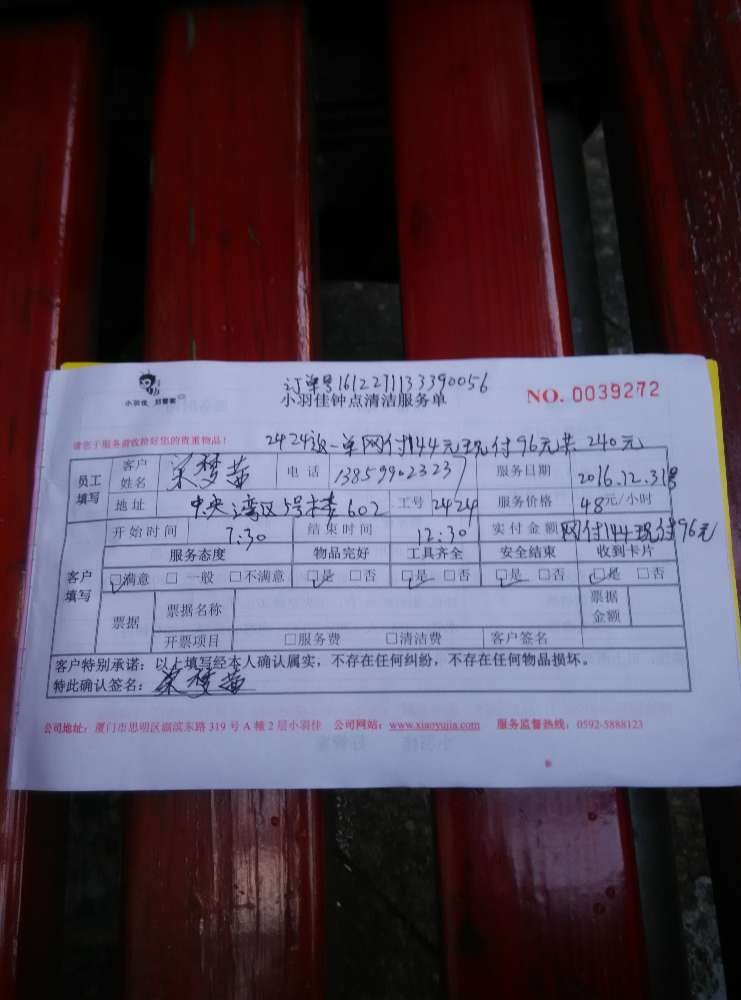 订单号1612271133390056
小羽佳 好管家
小羽佳钟点清洁服务单
NO. 0039272
请您于服务前收捡好您的贵重物品!
2424 一单网付144元现付96元共240元
员工填写 客户姓名 梁梦茵 电话 13859902323 服务日期 2016.12.31号
地址 中央湾区5号楼602 工号 2424 服务价格 48元/小时
客户填写 开始时间 7:30 结束时间 12:30 实付金额 网付144现付96元
服务态度 物品完好 工具齐全 安全结束 收到卡片
☑满意 □一般 □不满意 ☑是 □否 ☑是 □否 ☑是 □否 ☑是 □否
票据 票据名称 票据金额
开票项目 □服务费 □清洁费 客户签名
客户特别承诺：以上填写经本人确认属实，不存在任何纠纷，不存在任何物品损坏。
特此确认签名：梁梦茵
公司地址：厦门市思明区湖滨东路319号A幢2层小羽佳 公司网站：www.xiaoyujia.com 服务监督热线：0592-5888123